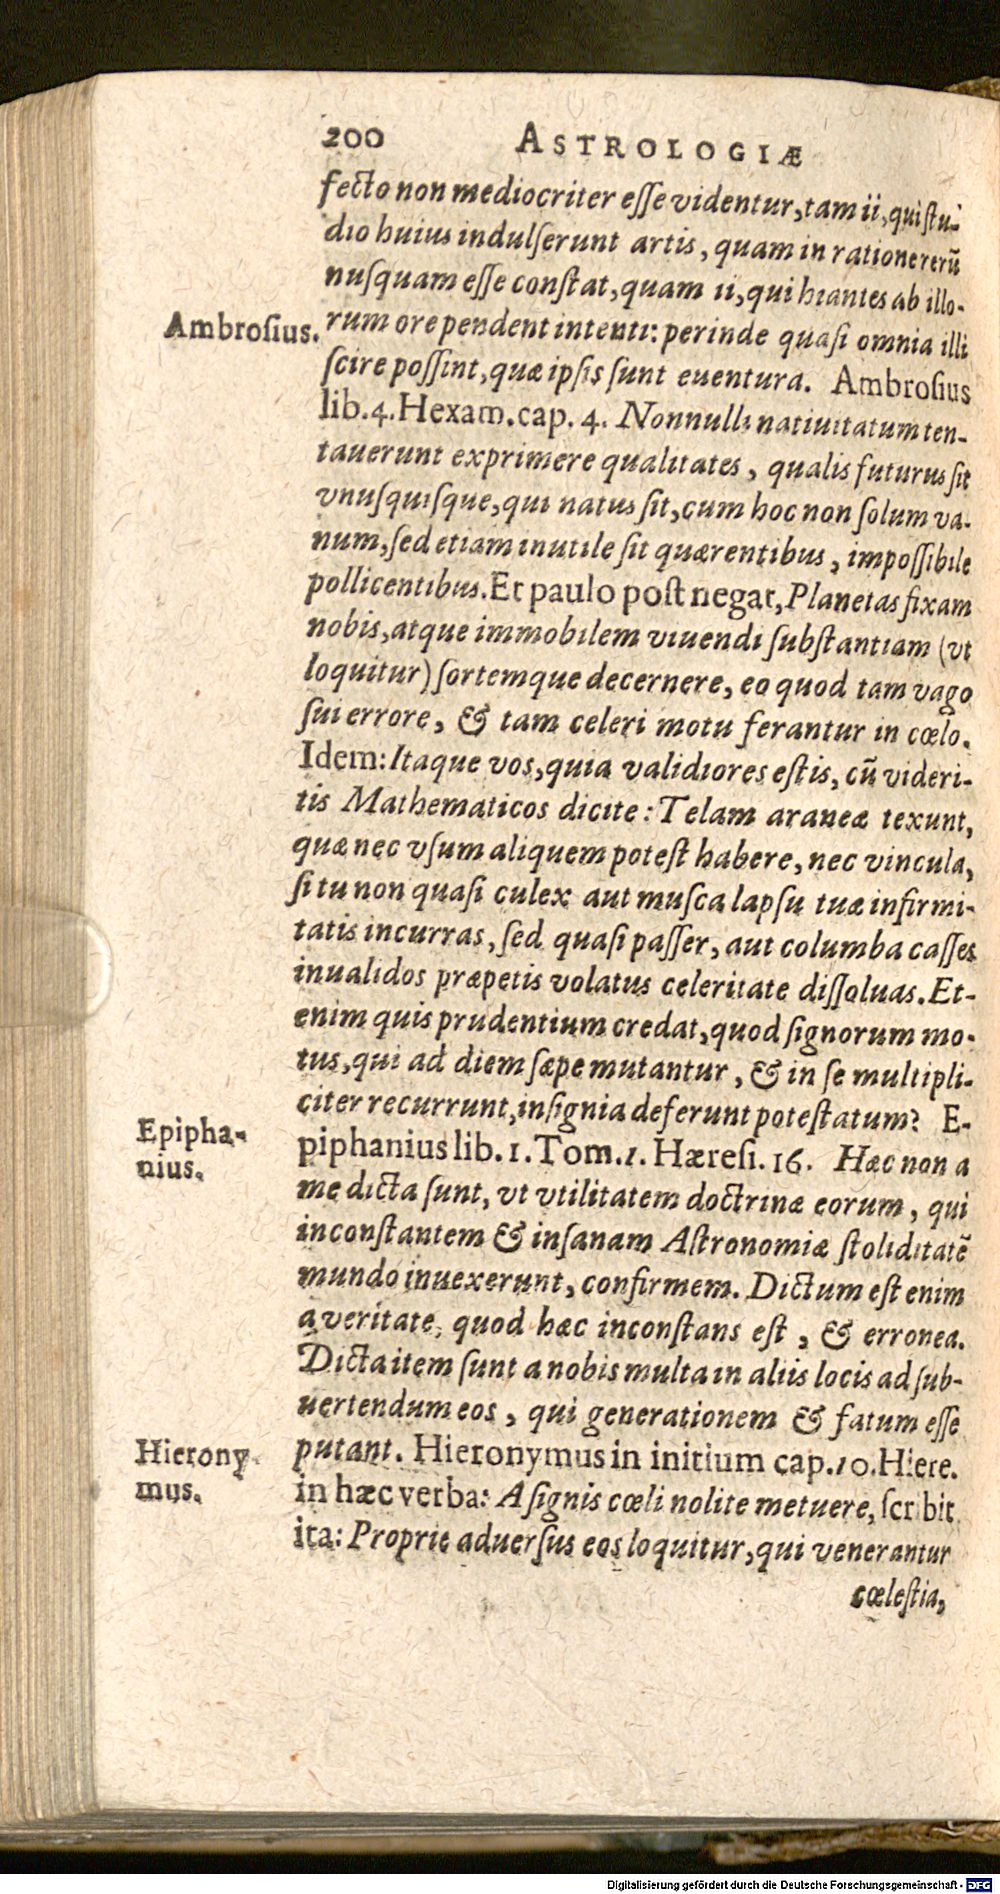 200 ASTROLOGIÆ
fecto non mediocriter eſſe videntur, tam ii, qui ſtu-
dio huius indulſerunt artis, quam in ratione rerū
nuſquam eſſe conſtat, quam ii, qui hiantes ab illo-
Ambroſius.
rum ore pendent intenti: perinde quaſi omnia illi
ſcire poſſint, quæ ipſis ſunt euentura. Ambroſius
lib. 4. Hexam. cap. 4. Nonnulli natiuitatum ten-
tauerunt exprimere qualitates, qualis futurus ſit
vnuſquiſque, qui natus ſit, cum hoc non ſolum va-
num, ſed etiam inutile ſit quærentibus, impoſſibile
pollicentibus. Et paulo poſt negat, Planetas fixam
nobis, atque immobilem viuendi ſubſtantiam (vt
loquitur) ſortemque decernere, eo quod tam vago
ſui errore, & tam celeri motu ferantur in cœlo.
Idem: Itaque vos, quia validiores eſtis, cū videri-
tis Mathematicos dicite: Telam araneæ texunt,
quæ nec vſum aliquem poteſt habere, nec vincula,
ſi tu non quaſi culex aut muſca lapſu tuæ infirmi-
tatis incurras, ſed quaſi paſſer, aut columba caſſes
inualidos præpetis volatus celeritate diſſoluas. Et-
enim quis prudentium credat, quod ſignorum mo-
tus, qui ad diem ſæpe mutantur, & in ſe multipli-
citer recurrunt, inſignia deferunt poteſtatum? E-
Epipha-
nius.
piphanius lib. 1. Tom. 1. Hæreſi. 16. Hæc non a
me dicta ſunt, vt vtilitatem doctrinæ eorum, qui
inconſtantem & inſanam Aſtronomiæ ſtoliditatē
mundo inuexerunt, confirmem. Dictum eſt enim
a veritate, quod hæc inconſtans eſt, & erronea.
Dicta item ſunt a nobis multa in aliis locis ad ſub-
uertendum eos, qui generationem & fatum eſſe
Hierony-
mus.
putant. Hieronymus in initium cap. 10. Hiere.
in hæc verba: A ſignis cœli nolite metuere, ſcribit
ita: Proprie aduerſus eos loquitur, qui venerantur
cœleſtia,
Digitalisierung gefördert durch die Deutsche Forschungsgemeinschaft - DFG